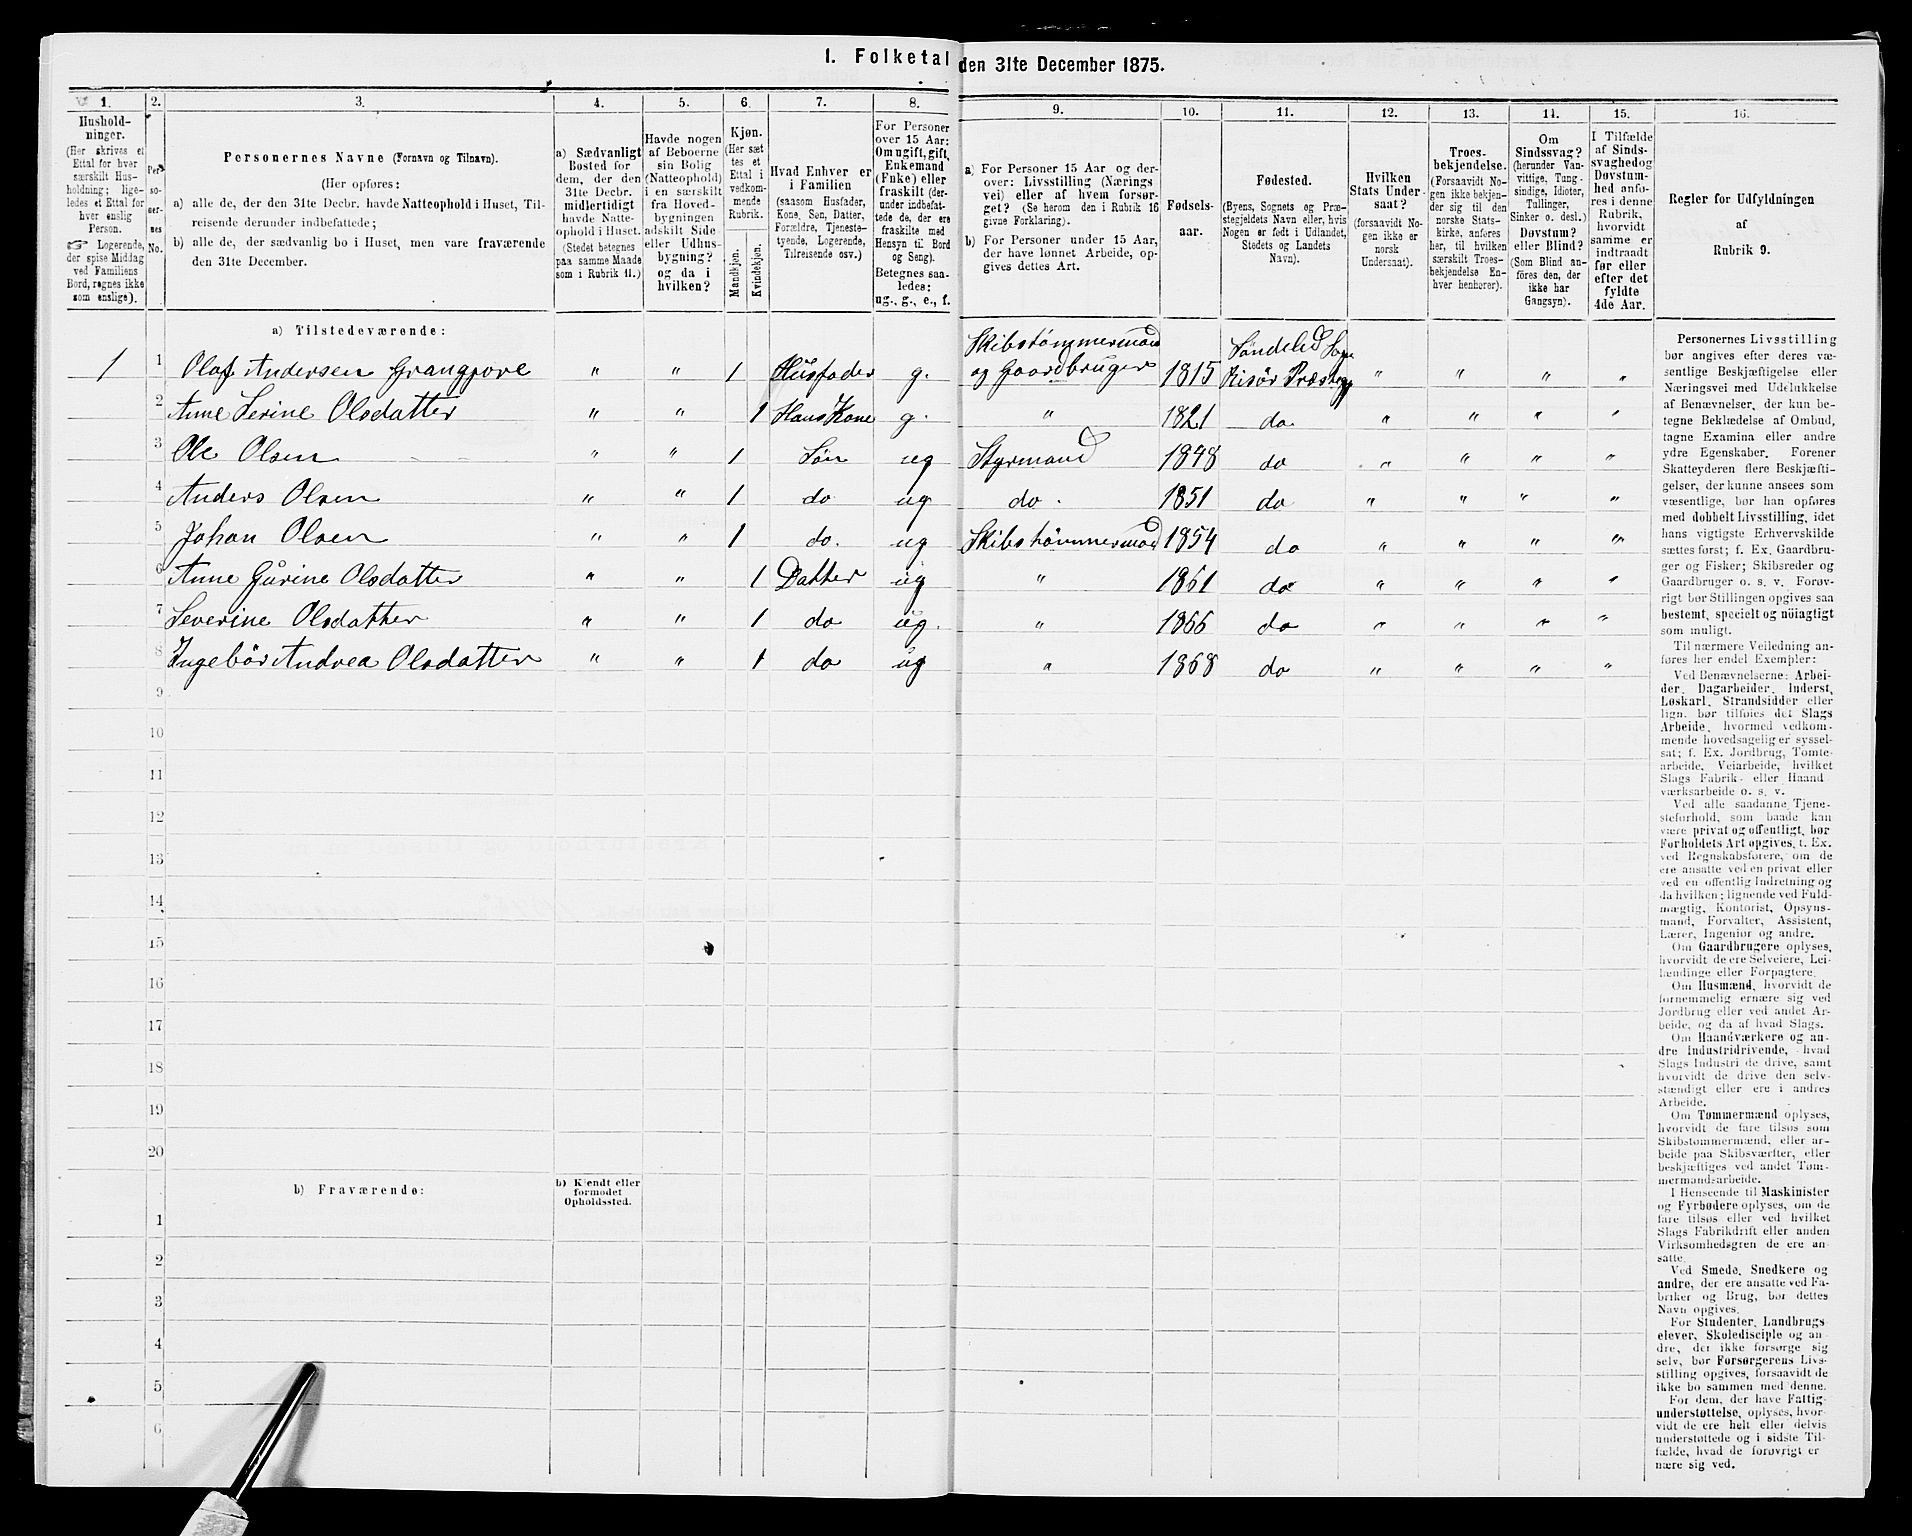 1. Folketal den 31te December 1875.
1. 2. 3. 4. 5. 6. 7. 8. 9. 10. 11. 12. 13. 14. 15. 16.
Hushold-
ninger.
(Her skrives et
Ettal for hver
særskilt Hus-
holdning; lige-
ledes et Ettal for
hver enslig
Person.
☞ Logerende,
der spise Middag
ved Familiens
Bord, regnes ikke
som enslige).
Per-
so-
ner-
nes
No.
Personernes Navne (Fornavn og Tilnavn).
(Her opføres:
a) alle de, der den 31te Decbr. havde Natteophold i Huset, Til-
reisende derunder indbefattede;
b) alle de, der sædvanlig bo i Huset, men vare fraværende
den 31te December.
a) Sædvanligt
Bosted for
dem, der den
31te Decbr.
midlertidigt
havde Natte-
ophold i Huset.
(Stedet betegnes
paa samme Maade
som i Rubrik 11.)
Havde nogen
af Beboerne
sin Bolig
(Natteophold)
i en særskilt
fra Hoved-
bygningen
adskilt Side-
eller Udhus-
bygning?
og da i
hvilken?
Kjøn.
(Her sæt-
tes et
Ettal i
vedkom-
mende
Rubrik.
Mandkjøn.
Kvindekjøn.
Hvad Enhver er
i Familien
(saasom Husfader,
Kone, Søn, Datter,
Forældre, Tjeneste-
tyende, Logerende,
Tilreisende osv.)
For Personer
over 15 Aar:
Om ugift, gift,
Enkemand
(Enke) eller
fraskilt (der-
under indbefat-
tede de, der ere
fraskilte med
Hensyn til Bord
og Seng).
Betegnes saa-
ledes:
ug., g., e., f.
a) For Personer 15 Aar og der-
over: Livsstilling (Nærings-
vei) eller af hvem forsør-
get? (Se herom den i Rubrik 16
givne Forklaring).
b) For Personer under 15 Aar,
der have lønnet Arbeide, op-
gives dettes Art.
Fødsels-
aar.
Fødested.
(Byens, Sognets og Præ-
stegjeldets Navn eller, hvis
Nogen er født i Udlandet,
Stedets og Landets
Navn).
Hvilken
Stats Under-
saat?
(forsaavidt No-
gen ikke er
norsk
Undersaat).
Troes-
bekjendelse.
(Forsaavidt No-
gen ikke bekjen-
der sig til den
norske Stats-
kirke, anføres
her, til hvilken
særskilt Troes-
bekjendelse En-
hver henhører).
Om
Sindssvag?
(herunder Van-
vittige, Tung-
sindige, Idioter,
Tullinger,
Sinker o. desl.)
Døvstum?
eller Blind?
(Som Blind an-
føres den, der
ikke har
Gangsyn).
I Tilfælde
af Sinds-
svaghed og
Døvstum-
hed anfø-
res i denne
Rubrik,
hvorvidt
samme er
indtraadt
før eller
efter det
fyldte
4de Aar.
Regler for Udfyldningen
af
Rubrik 9.
a) Tilstedeværende:
1 1 Olaf Andersen Grangjove " " 1 Husfader g. Skibstømmermand og Gaardbruger 1815 Søndeled Sogn Risør Præstegj " " " "
2 Anne Serine Olsdatter " " 1 Hans Kone g. " 1821 do " " " "
3 Ole Olsen " " 1 Søn ug Styrmand 1848 do " " " "
4 Anders Olsen " " 1 do ug do. 1851 do " " " "
5 Johan Olsen " " 1 do. ug Skibstømmermand 1854 do " " " "
6 Anne Gurine Olsdatter " " 1 Datter ug " 1861 do " " " "
7 Severine Olsdatter " " 1 do ug. " 1866 do " " " "
8 Ingebör Andrea Olsdatter " " 1 do ug " 1868 do " " " "
9
10
11
12
13
14
15
16
17
18
19
20
b) Fraværende:
b) Kjendt eller
formodet
Opholdssted.
1
2
3
4
5
6
Personernes Livsstilling
bør angives efter deres væ-
sentlige Beskjæftigelse eller
Næringsvei med Udelukkelse
af Benævnelser, der kun be-
tegne Beklædelse af Ombud,
tagne Examina eller andre
ydre Egenskaber. Forener
Skatteyderen flere Beskjæfti-
gelser, der kunne ansees som
væsentlige, bør han opføres
med dobbelt Livsstilling, idet
hans vigtigste Erhvervskilde
sættes først; f. Ex. Gaardbru-
ger og Fisker; Skibsreder og
Gaardbruger o. s. v. Forøv-
rigt bør Stillingen opgives saa
bestemt, specielt og nöiagtigt
som muligt.
Til nærmere Veiledning an-
føres her endel Exempler:
Ved Benævnelserne: Arbei-
der, Dagarbeider, Inderst,
Løskarl, Strandsidder eller
lign. bør tilføies det Slags
Arbeide, hvormed vedkom-
mende hovedsagelig er syssel-
sat; f. Ex. Jordbrug, Tomte-
arbeide, Veiarbeide, hvilket
Slags Fabrik- eller Haand-
værksarbeide o. s. v.
Ved alle saadanne Tjene-
steforhold, som baade kan
være privat og offentligt, bør
Forholdets Art opgives, f. Ex.
ved Regnskabsførere, om de
ere ansatte ved en privat eller
ved en offentlig Indretning og
da hvilken; lignende ved Fuld-
mægtig, Kontorist, Opsyns-
mand, Forvalter, Assistent,
Lærer, Ingeniør og andre.
Om Gaardbrugere oplyses,
hvorvidt de ere Selveiere, Lei-
lændinge eller Forpagtere.
Om Husmænd, hvorvidt de
fornemmelig ernære sig ved
Jordbrug eller ved andet Ar-
beide, og da af hvad Slags.
Om Haandværkere og an-
dre Industridrivende, hvad
Slags Industri de drive, samt
hvorvidt de drive den selv-
stændigt eller ere i andres
Arbeide.
Om Tømmermænd oplyses,
hvorvidt de fare tilsøs som
Skibstømmermænd, eller ar-
beide paa Skibsværfter, eller
beskjæftiges ved andet Tøm-
mermandsarbeide.
I Henseende til Maskinister
og Fyrbødere oplyses, om de
fare tilsøs eller ved hvilket
Slags Fabrikdrift eller anden
Virksomhedsgren de ere an-
satte.
Ved Smede, Snedkere og
andre, der ere ansatte ved Fa-
briker og Brug, bør dettes
Navn opgives.
For Studenter, Landbrugs-
elever, Skoledisciple og an-
dre, der ikke forsørge sig
selv, bør Forsørgerens Livs-
stilling opgives, forsaavidt de
ikke bo sammen med denne.
For dem, der have Fattig-
understøttelse, oplyses, hvor-
vidt de ere helt eller delvis
understøttede og i sidste Til-
fælde, hvad de forøvrigt er-
nære sig ved.